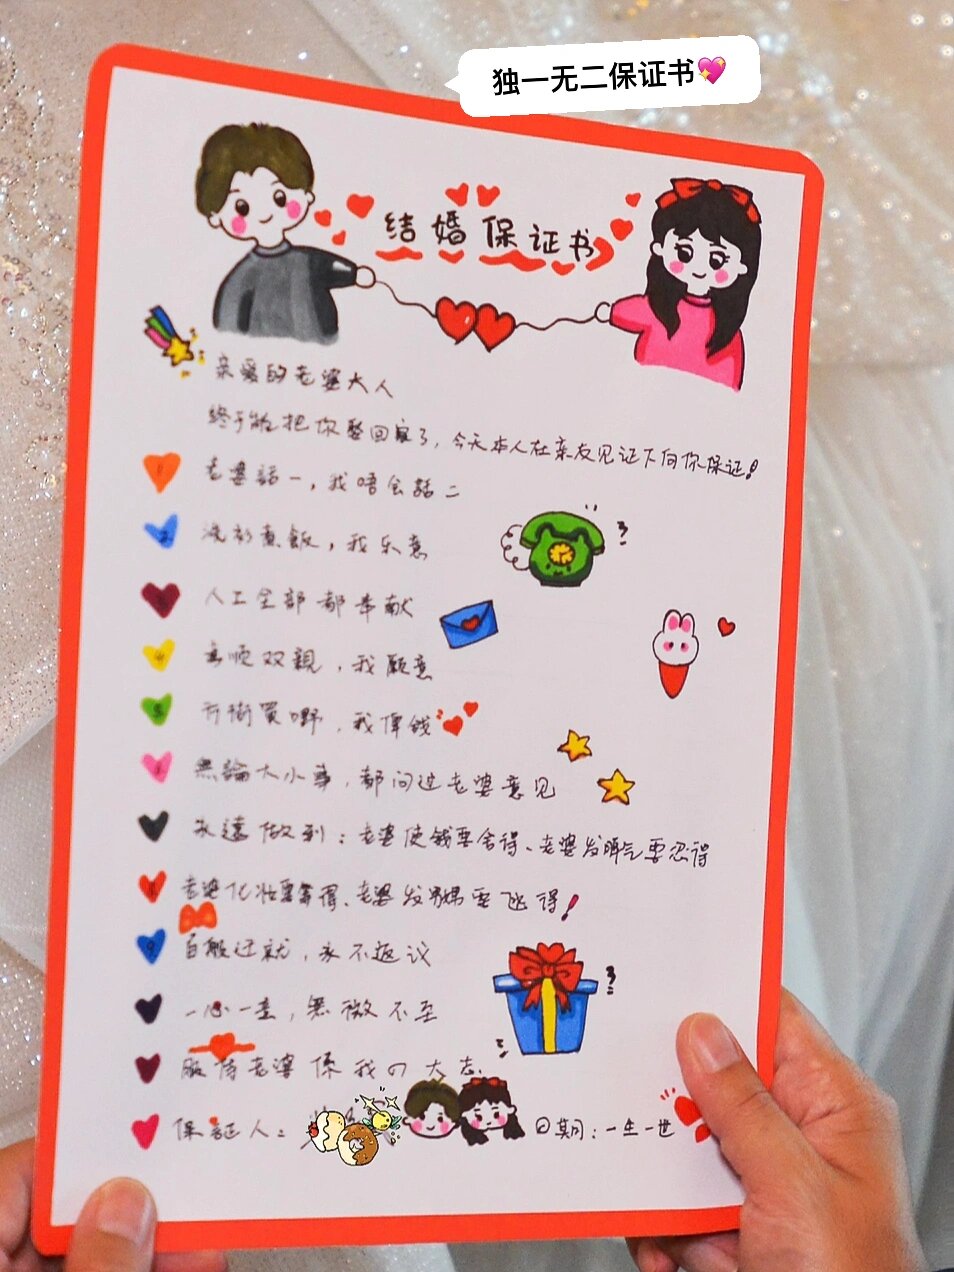 独一无二保证书💖
结婚保证书
亲爱的老婆大人
终于能把你娶回家了，今天本人在亲友见证下向你保证！
1 老婆話一，我唔会話二
2 洗衫煮飯，我乐意
人工全部都奉献
4 孝順双親，我願意
5 行街買嘢，我俾钱
無論大小事，都问过老婆意见
永遠做到：老婆使钱要舍得、老婆发脾气要忍得
8 老婆化妆要等得、老婆发男嬲要氹得！
9 百般迁就，永不返议
一心一意，無微不至
服侍老婆係我の大志.
保証人：
日期：一生一世